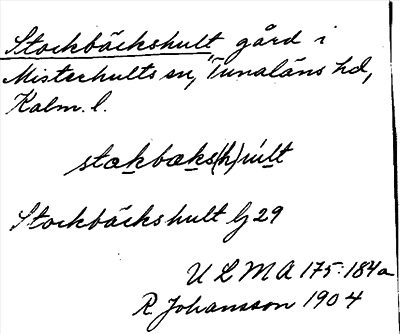 Stockbäckshult gård i
Misterhults sn, Tunaläns hd,
Kalm. l.
stækbæks(h)ult
Stockbäckshult lj 29
U L M A 175:184a
R Johansson 1904